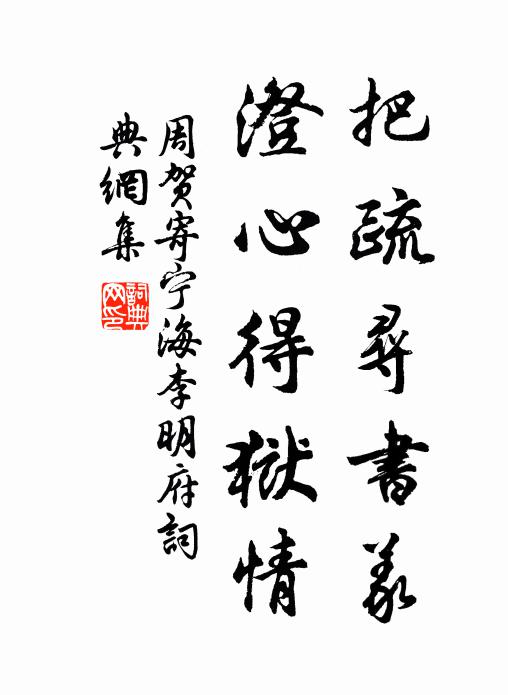 把疏尋書義
澄心得獄情
周贺寄宁海李明府詞
典網集
詞典网印